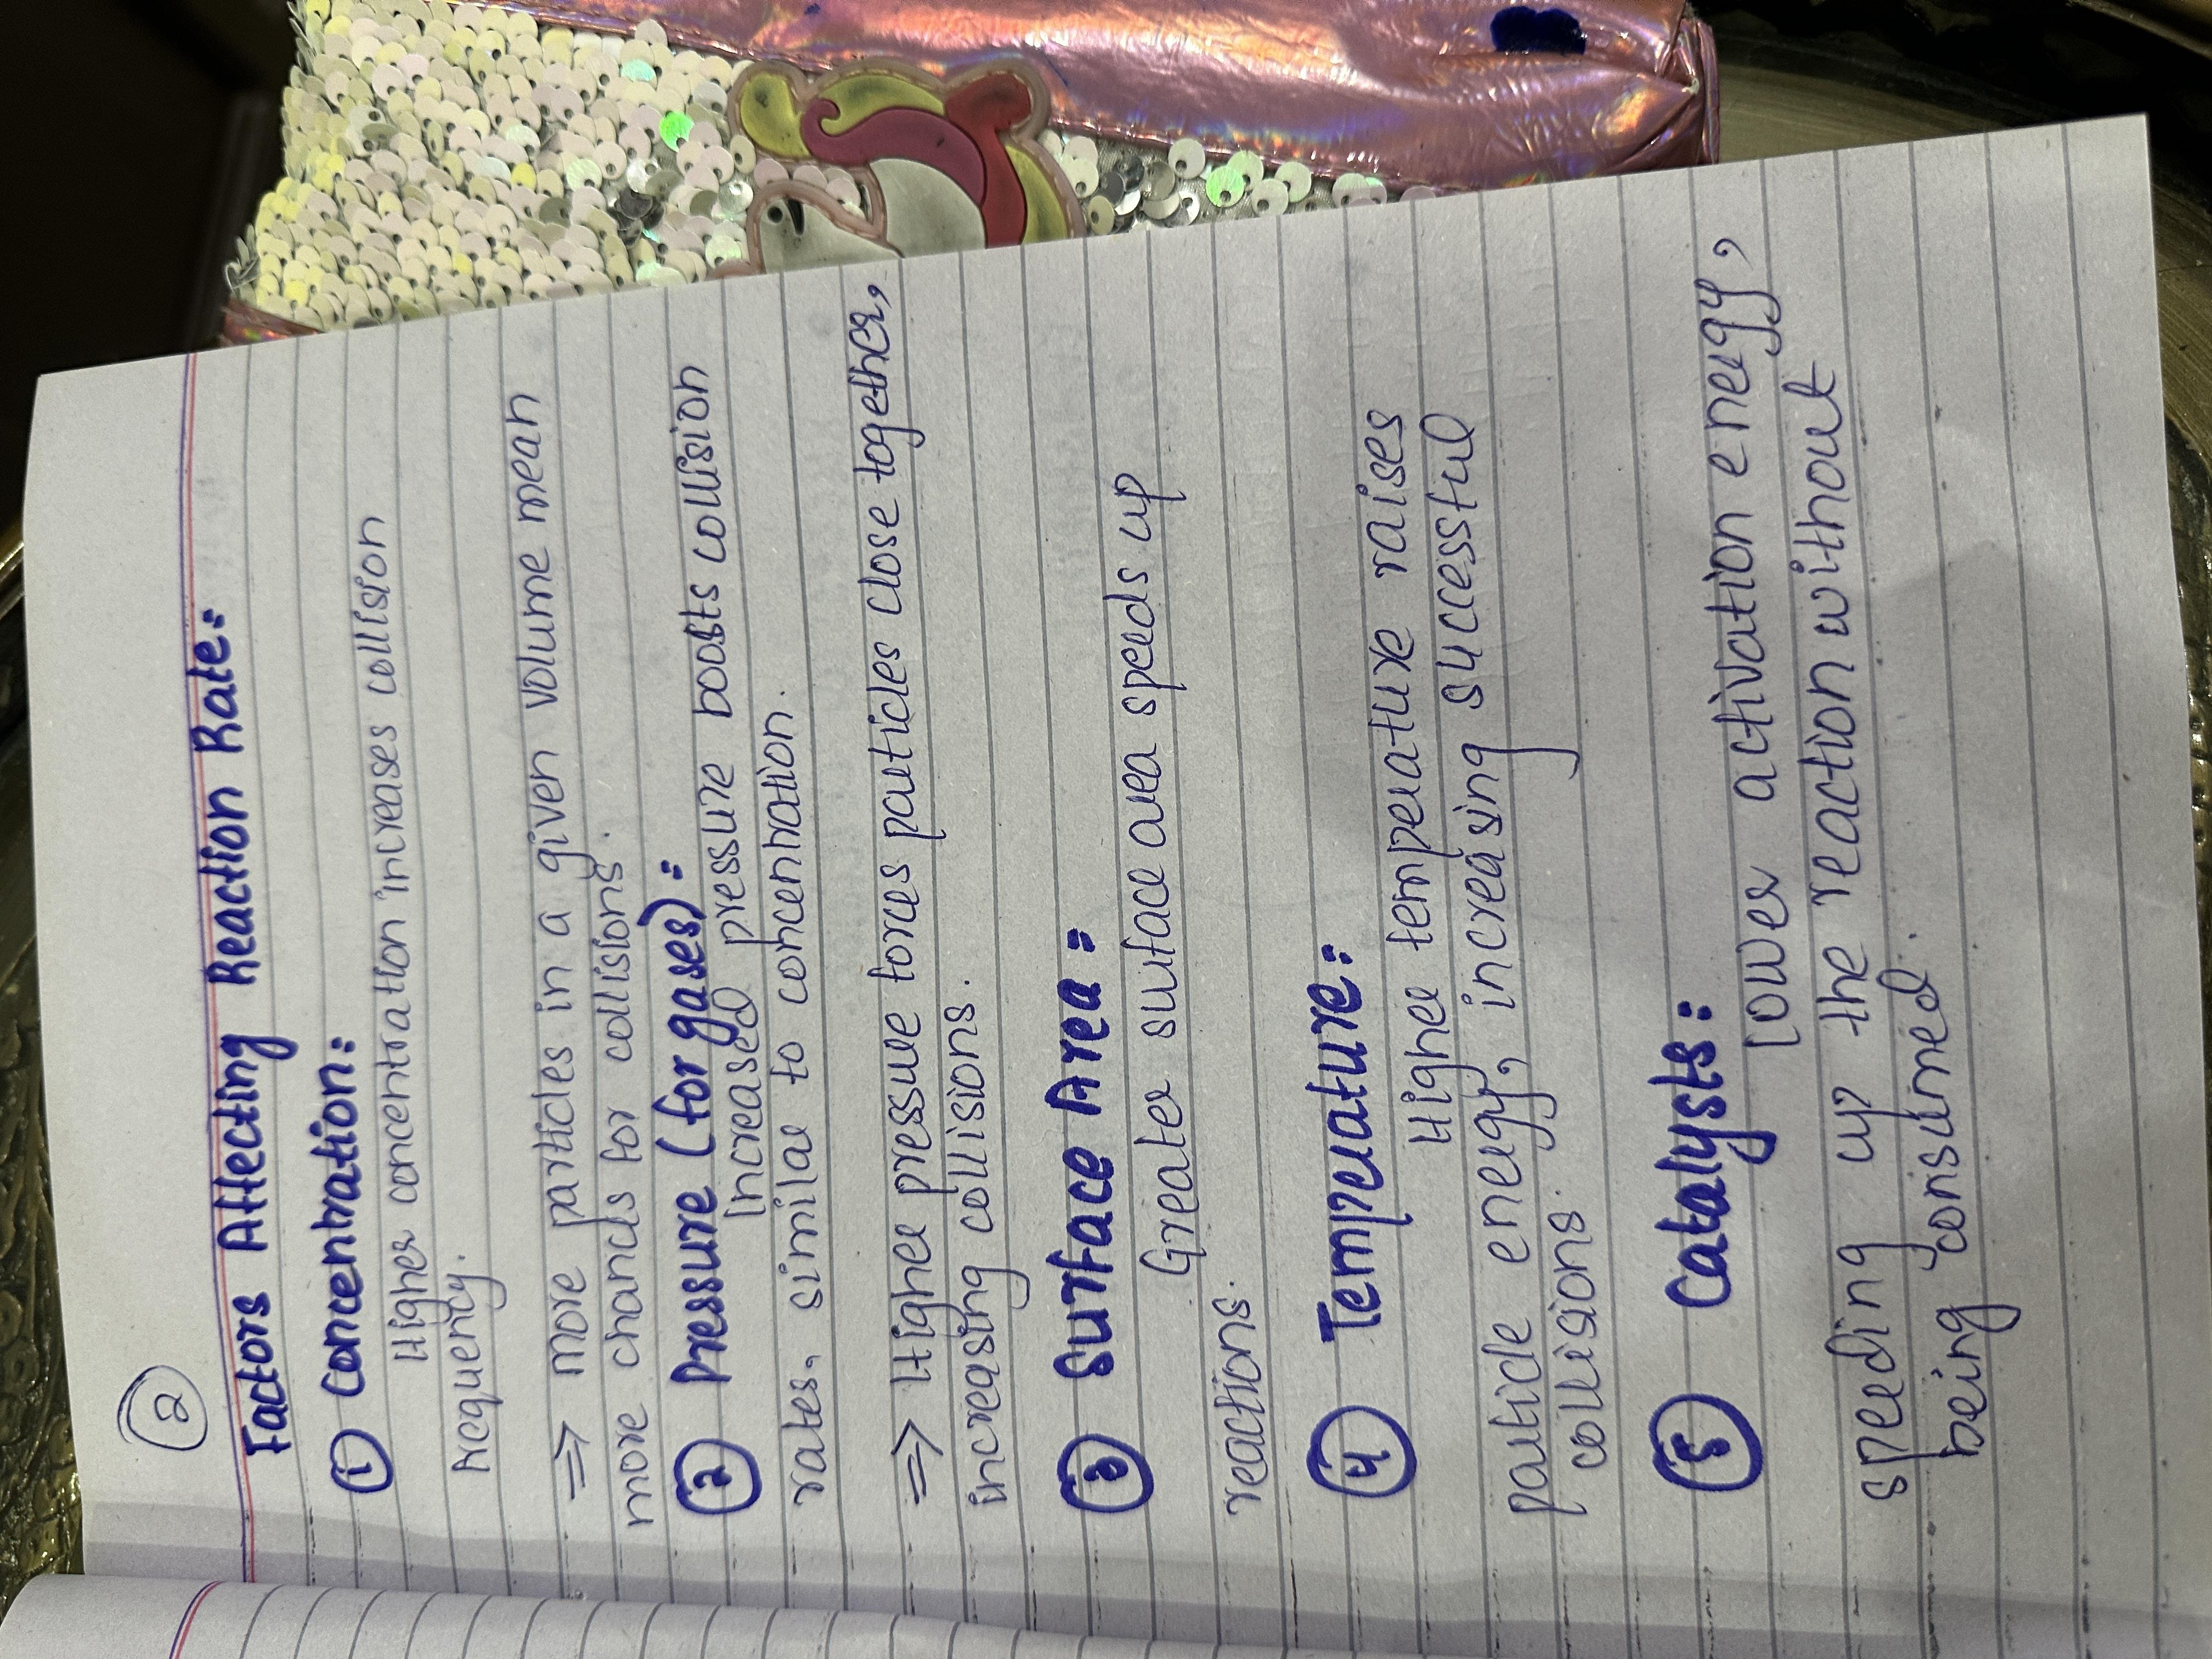 2
Factors Affecting Reaction Rate:
① Concentration:
Higher concentration increases collision
frequency.
⇒ more particles in a given volume mean
more chances for collisions.
② Pressure (for gases):
Increased pressure boosts collision
rates, similar to concentration.
⇒ Higher pressure forces particles close together,
increasing collisions.
③ Surface Area:
Greater surface area speeds up
reactions.
④ Temperature:
Higher temperature raises
particle energy, increasing successful
collisions.
⑤ Catalysts:
lower activation energy,
speeding up the reaction without
being consumed.